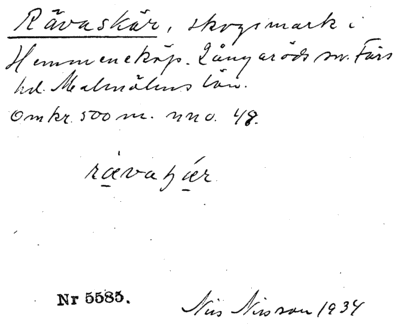 Rävaskär, skogsmark i
Hemmeneköp. Långaröds sn. Färs
hd. Malmöhus län.
Omkr. 500 m. nno. 48.
rävahär
Nr 5585.
Nils Nilsson 1934